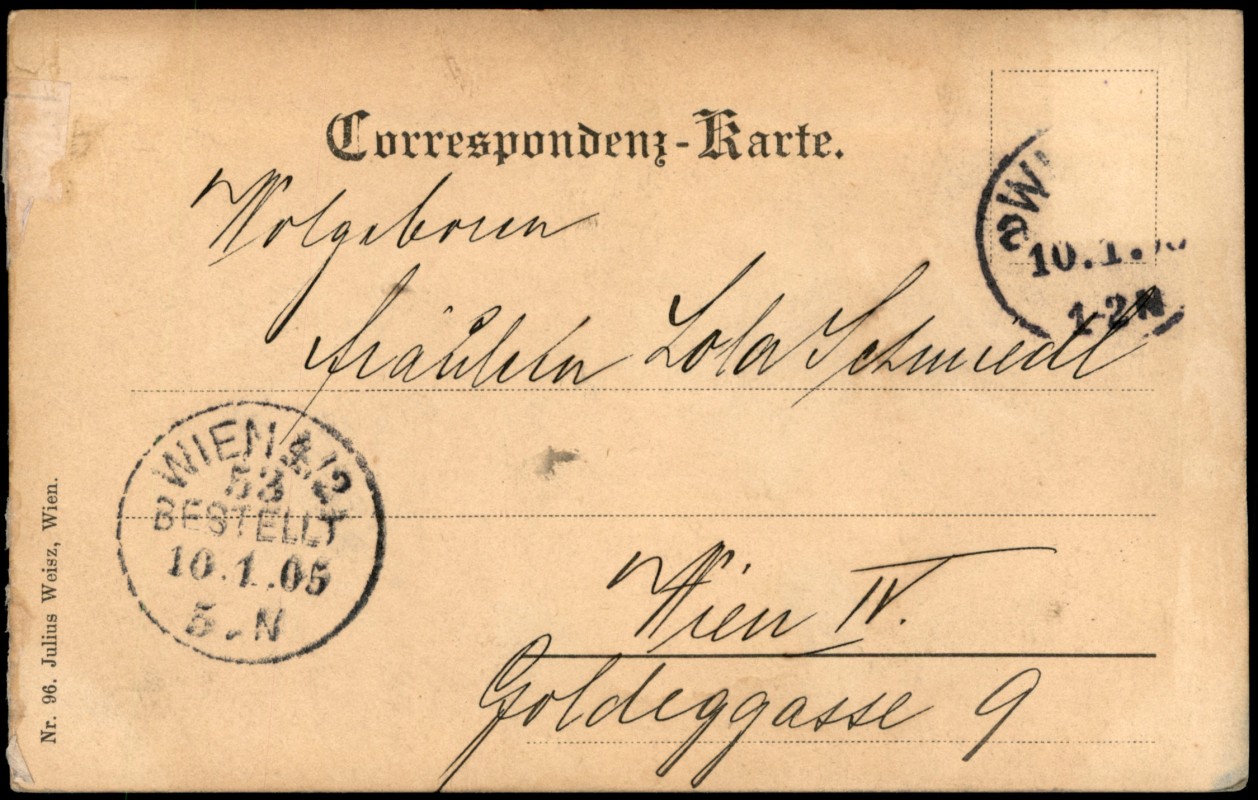 Correspondenz-Karte.
Wolgeboren
Fräulein Lola Schmiedl
Wien IV.
Goldeggasse 9
WI
10.1.
1-2N
WIEN 4/2
53
BESTELLT
10.1.05
5.N
Nr. 96. Julius Weisz, Wien.